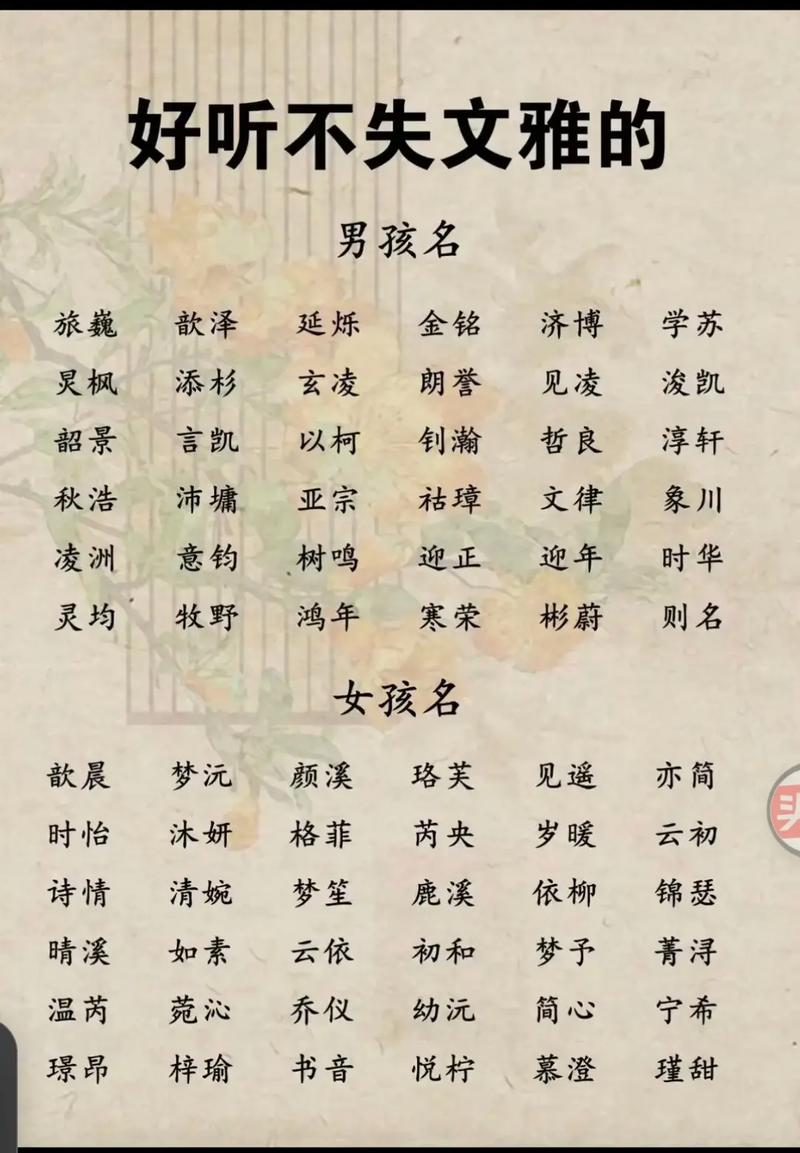 好听不失文雅的
男孩名
旅巍 歆泽 延烁 金铭 济博 学苏
炅枫 添杉 玄凌 朗誉 见凌 浚凯
韶景 言凯 以柯 钊瀚 哲良 淳轩
秋浩 沛墉 亚宗 祜璋 文律 象川
凌洲 意钧 树鸣 迎正 迎年 时华
灵均 牧野 鸿年 寒荣 彬蔚 则名
女孩名
歆晨 梦沅 颜溪 珞芙 见遥 亦简
时怡 沐妍 格菲 芮央 岁暖 云初
诗情 清婉 梦笙 鹿溪 依柳 锦瑟
晴溪 如素 云依 初和 梦予 菁浔
温芮 菀沁 乔仪 幼沅 简心 宁希
璟昂 梓瑜 书音 悦柠 慕澄 瑾甜